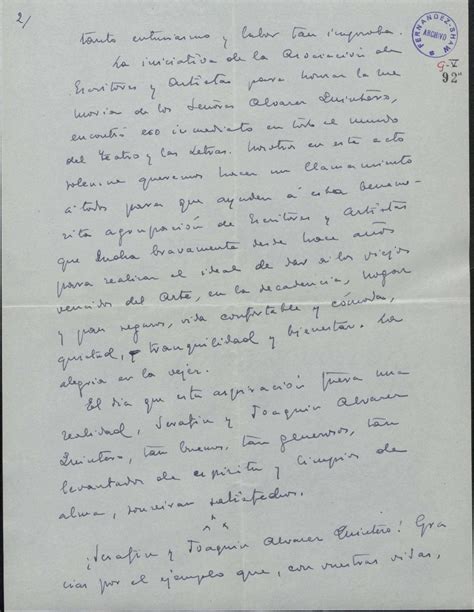 2/
FERNANDEZ-SHAW
ARCHIVO
G-V
92"
tanto entusiasmo y labor tan improba.
La iniciativa de la Asociación de
Escritores y Artistas para honrar la me
moria de los Señores Alvarez Quintero,
encontró eco inmediato en todo el mundo
del Teatro y las Letras. Nosotros en este acto
solemne queremos hacer un llamamiento
á todos para que ayuden á esta beneme-
rita agrupación de Escritores y Artistas
que lucha bravamente desde hace años
para realizar el ideal de dar a los viejos
vencidos del Arte, en la decadencia, hogar
y pan seguros, vida confortable y cómoda,
quietud, tranquilidad y bienestar. La
alegria en la vejez.
El dia que esta aspiración fuera una
realidad, Serafin y Joaquin Alvarez
Quintero, tan buenos, tan generosos, tan
levantados de espiritu y limpios de
alma, sonreiran satisfechos.
¡Serafin y Joaquin Alvarez Quintero! Gra
cias por el ejemplo que, con vuestras vidas,